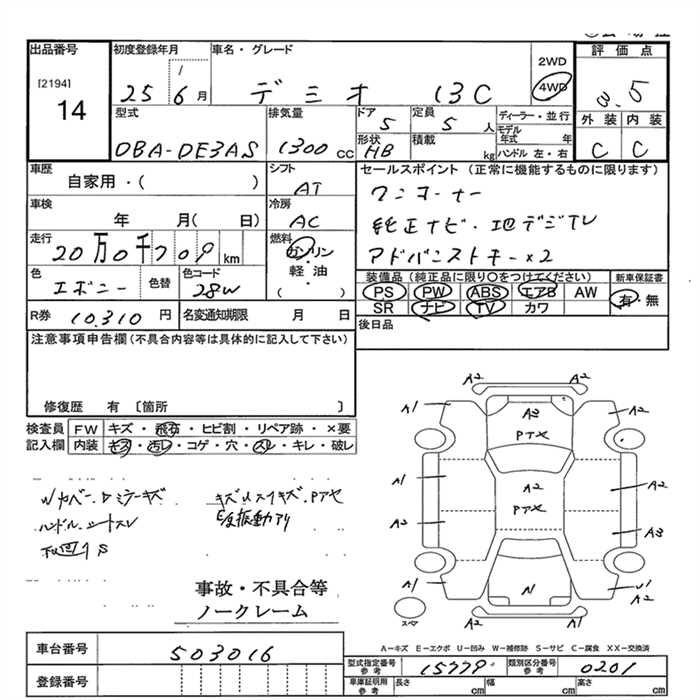 出品番号
[2194]
14
初度登録年月
25 / 6月
車名・グレード
デミオ 13C
2WD
4WD
評価点
3.5
外装 内装
C C
型式
DBA-DE3AS
排気量
1300 CC
ドア
5
定員
5 人
形状
HB
積載
kg
ディーラー・並行
モデル年式 年
ハンドル 左・右
車歴
自家用・( )
シフト
AT
車検
年 月( 日)
冷房
AC
走行
20万0千709 km
燃料
ガソリン
・
軽油
・
( )
色
エボニー
色替
色コード
28W
R券 10,310 円
名変通知期限 月 日
セールスポイント (正常に機能するものに限ります)
ワンオーナー
純正ナビ・地デジTV
アドバンストキー×2
装備品(純正品に限り○をつけてください)
PS PW ABS エアB AW
SR ナビ TV カワ
新車保証書
有・無
後日品
注意事項申告欄(不具合内容等は具体的に記入して下さい)
修復歴 有 〔箇所 〕
検査員記入欄
FW キズ・飛石・ヒビ割・リペア跡・×要
内装 キズ・汚レ・コゲ・穴・スレ・キレ・破レ
ハンドル、シートスレ
下回りS
事故・不具合等
ノークレーム
A2 A2
A1 A3 A2
PTX
A1 A2 A2
PTX
A2 A3
A2 N U1
A2
A2 A1
スペア
A－キズ E－エクボ U－凹み W－補修跡 S－サビ C－腐食 XX－交換済
車台番号 503016
登録番号
型式指定番号 参考 15779
類別区分番号 参考 0201
車庫証明用 参考 長さ cm 幅 cm 高さ cm